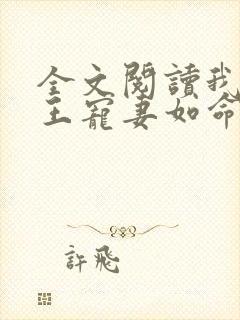 全文閱讀我
王寵妻如命
許飛